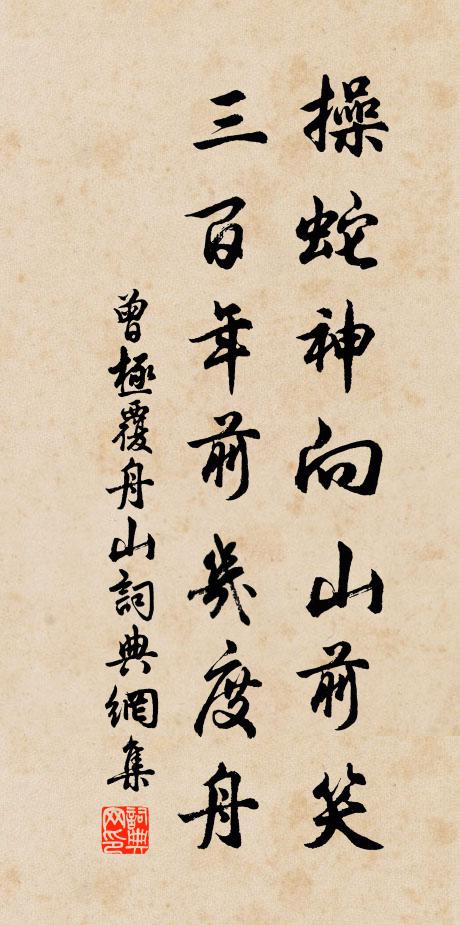 操蛇神向山前笑
三百年前幾度舟
曾極覆舟山詞典網集
詞典網印